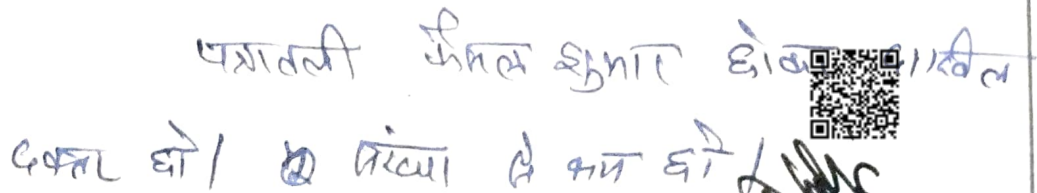 पत्रावली फैसल शुमार होकर दाखिल
दफ्तर हो। संख्या से कम हो।